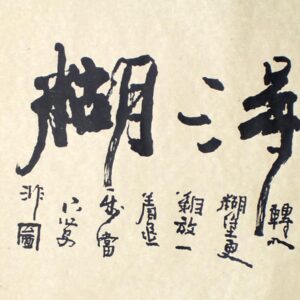 得糊
轉入
糊塗更
難放一
着退
步當
下心安
非圖